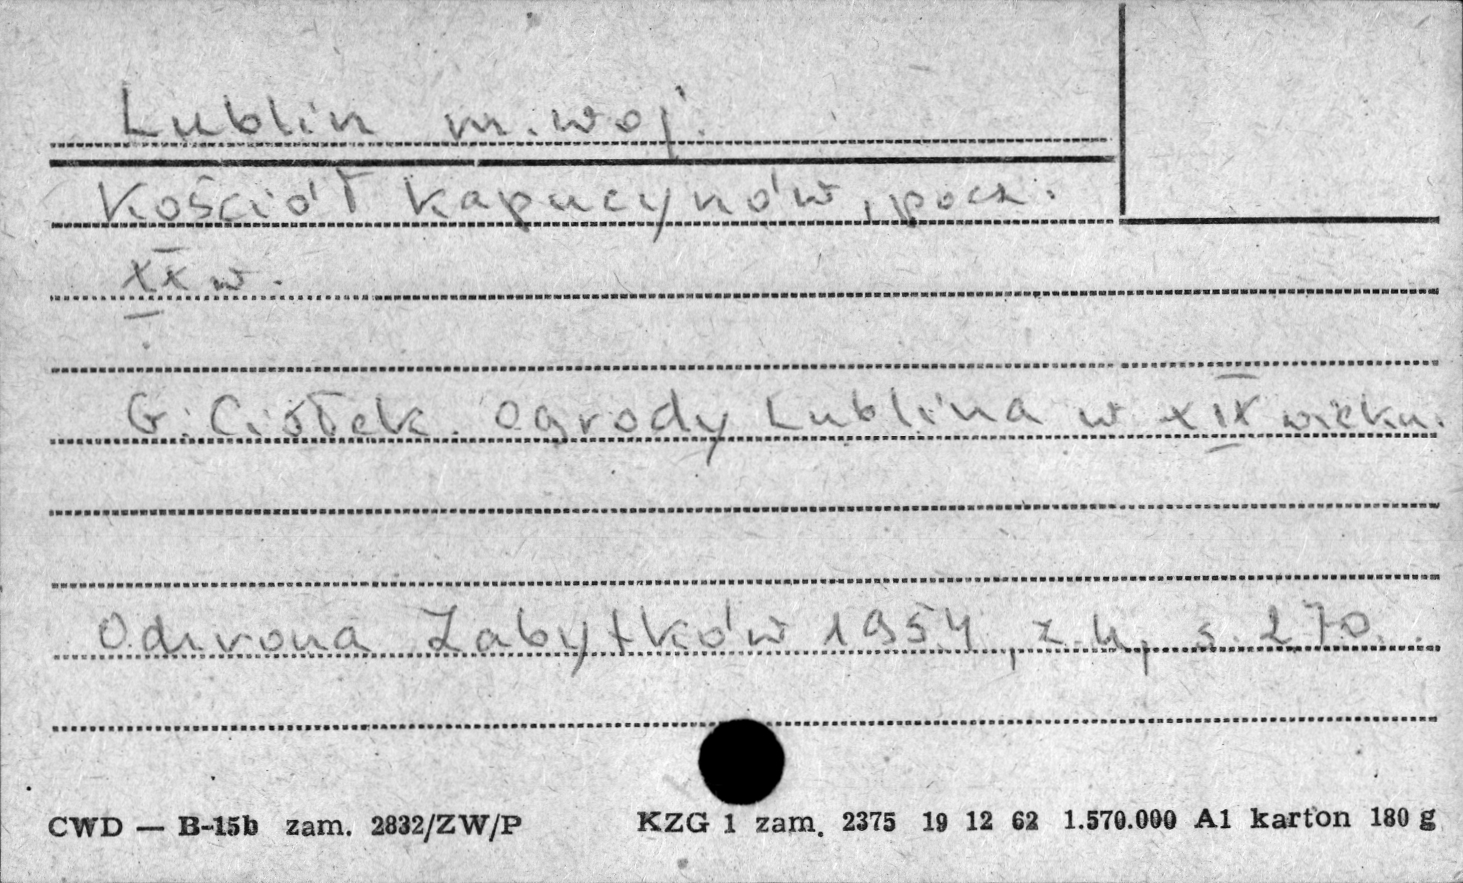 Lublin m. woj.
Kościół Kapucynów, pocz.
XX w.
G. Ciołek. Ogrody Lublina w XIX wieku.
Ochrona Zabytków 1954, z. 4, s. 270.
CWD — B-15b zam. 2832/ZW/P KZG 1 zam. 2375 19 12 62 1.570.000 A1 karton 180 g